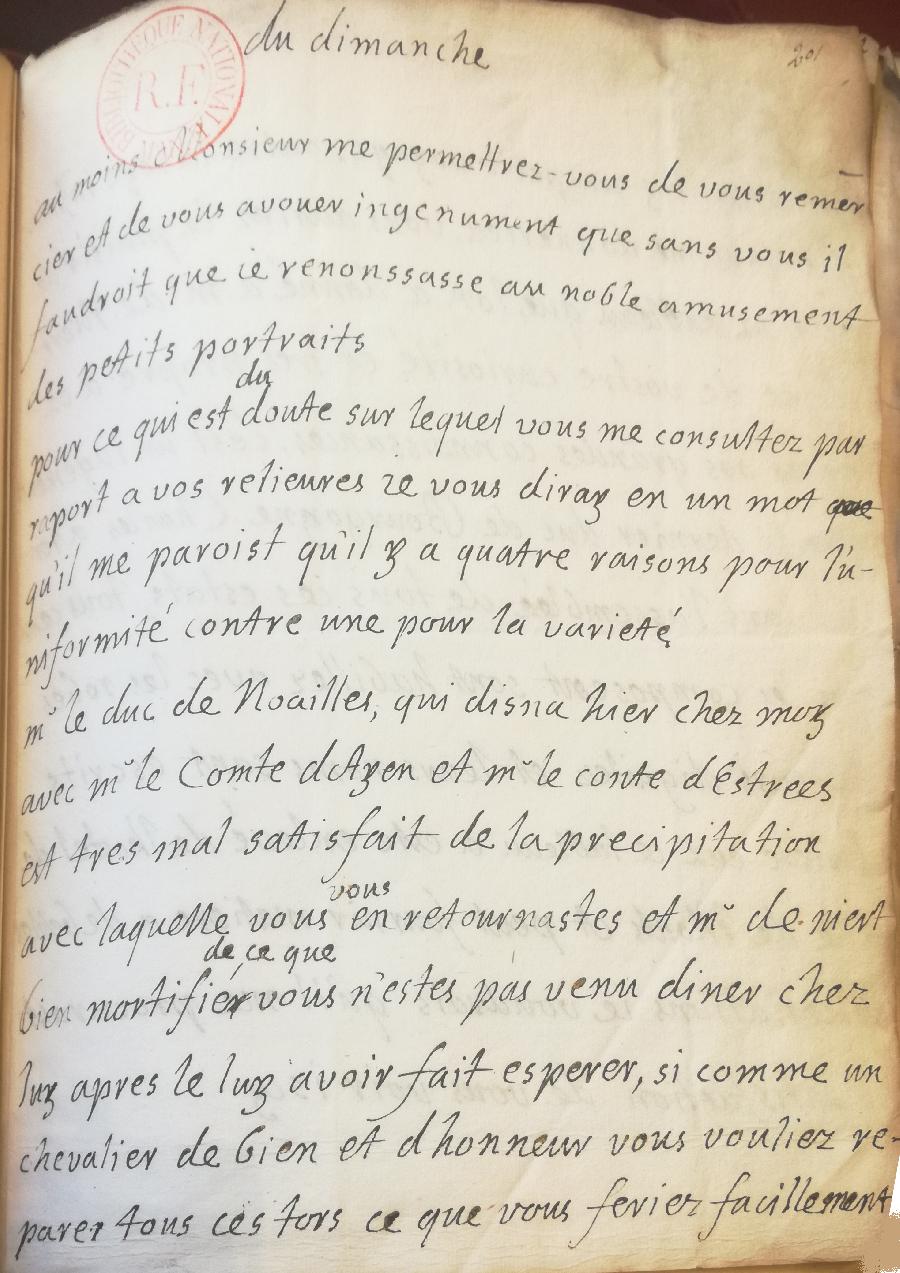 du dimanche
201
BIBLIOTHEQUE NATIONALE
R.F.
au moins Monsieur me permettrez-vous de vous remer
cier et de vous avouer ingenument que sans vous il
faudroit que ie renonssasse au noble amusement
des petits portraits
du
pour ce qui est doute sur lequel vous me consultez par
raport a vos relieures ie vous diray en un mot que
qu'il me paroist qu'il y a quatre raisons pour l'u-
niformité contre une pour la varieté
mr le duc de Noailles, qui disna hier chez moy
avec mr le Comte dAyen et mr le conte dEstrees
est tres mal satisfait de la precipitation
vous
avec laquelle vous en retournastes et mr de niert
de ce que
bien mortifiér vous n'estes pas venu diner chez
luy apres le luy avoir fait esperer, si comme un
chevalier de bien et dhonneur vous vouliez re-
parer tous ces tors ce que vous feriez facillement